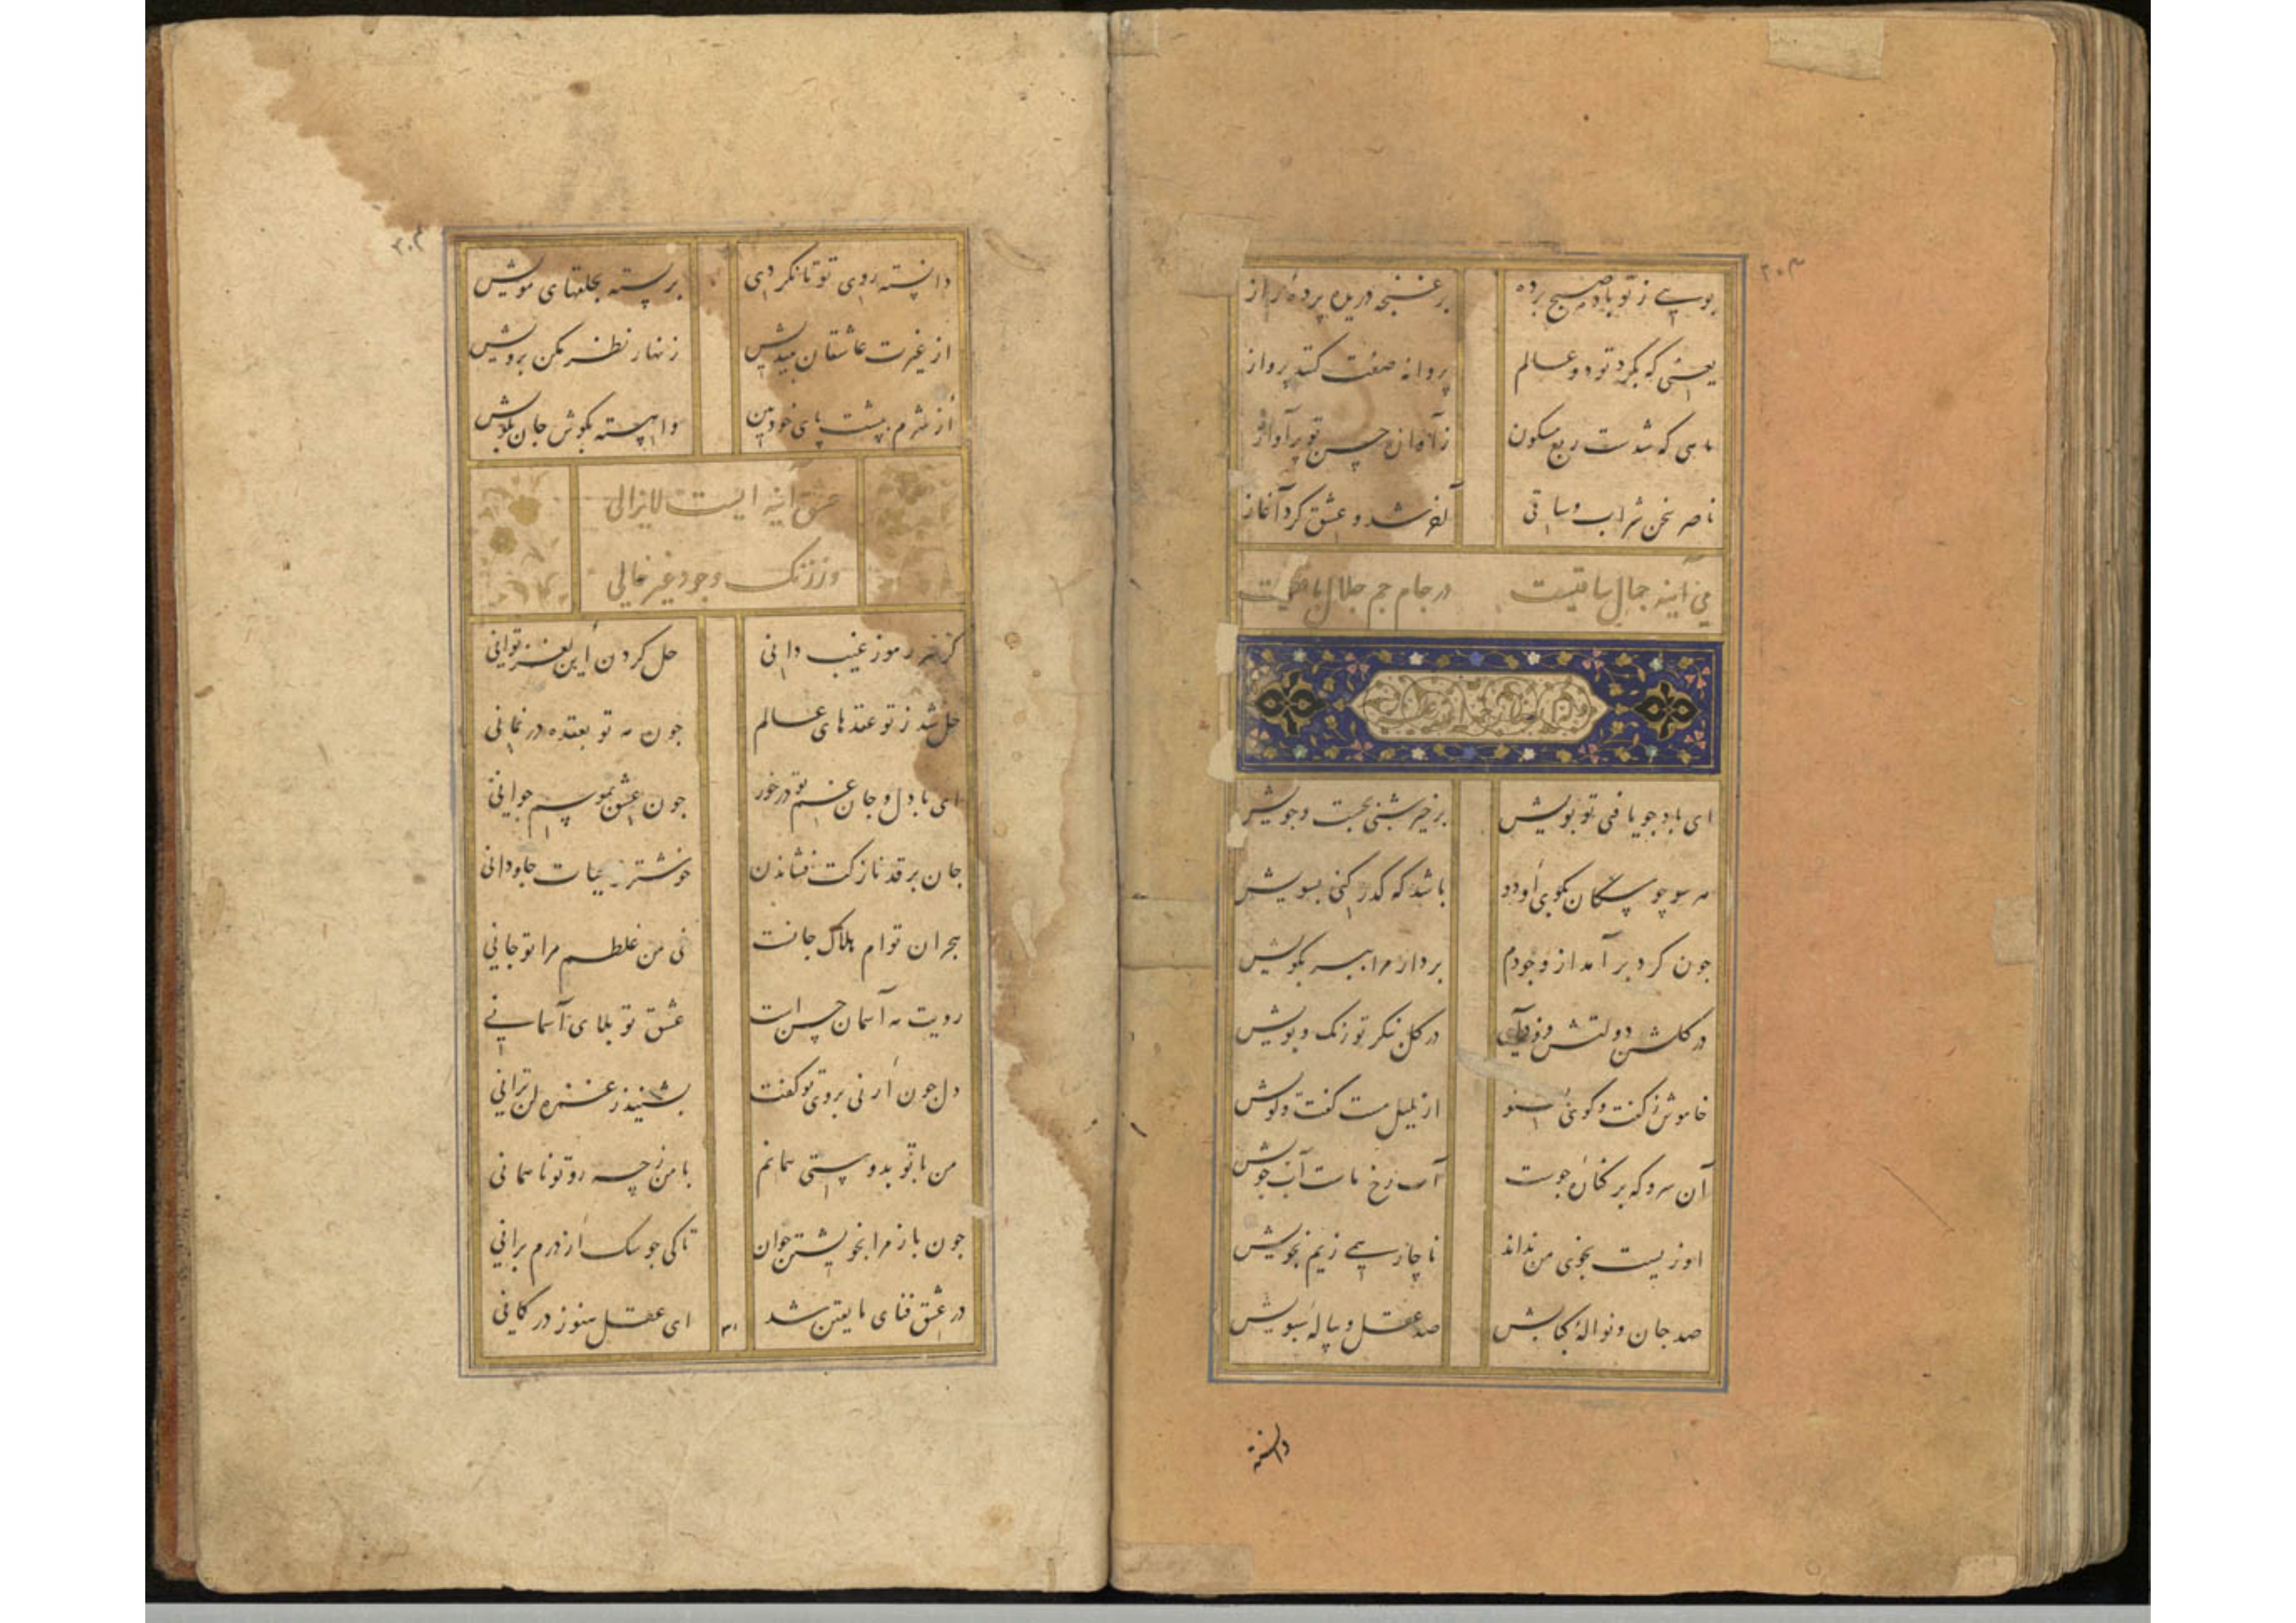 بویی ز تو باد صبح برده بر غنچه دریده پردهٔ راز
یعنی که بگرد تو دو عالم پروانه صفت کند پرواز
ماهی که شدست ربع مسکون ز آوازهٔ حسن تو پر آواز
ناصر سخن شراب و ساقی آخر شد و عشق کرد آغاز
می آینه جمال ساقیست در جام جم جلال باقیست
ای باد چو یافی تو بویش برخیز شبی بجست وجویش
هر سو چو سکان بکوی او دو باشد که کدر کنی بسویش
جون کرد بر آمد از وجودم بردار مرا ببر بکویش
در کلشن دولتش فرود آی در کل نکر تو رنک و بویش
خاموش ز کفت وکوی بشنو از بلبل مست کفت وکویش
آن سرو که بر کنارهٔ جوست آب رخ ماست آب جویش
او زیست بخوی من نداند ناچار همی زیم بخویش
صد جان و نوالهٔ کبابش صد عقل و پیالهٔ سبویش
دانسته
۳۰۳
دانسته روی تو تا نکردی بر بسته بحلقهای مویش
از غیرت عاشقان بیندیش زنهار نظر مکن برویش
از شرم بپشت پای خود بین واهسته بکوش جان بکویش
عشق اینه ایست لایزالی
وز زنک وجود غیر خالی
کر سر رموز غیب دانی حل کردن این لغز توانی
حل شد ز تو عقدهای عالم جون مه تو بعقده در نمانی
ای با دل و جان غم تو در خور جون عشق بموسم جوانی
جان بر قد نازکت فشاندن خوشتر ز حیات جاودانی
هجران توام هلاک جانست نی من غلطم مرا تو جانی
رویت مه آسمان حسن است عشق تو بلای آسمانی
دل جون ارنی بروی تو کفت بشنید ز غمزه لن ترانی
من با تو بدوستی همانم با من ز چه رو تو نا همانی
جون باز مرا بخویشتن خوان تا کی جو سک از درم برانی
در عشق فنای ما یقین شد ای عقل هنوز در کمانی